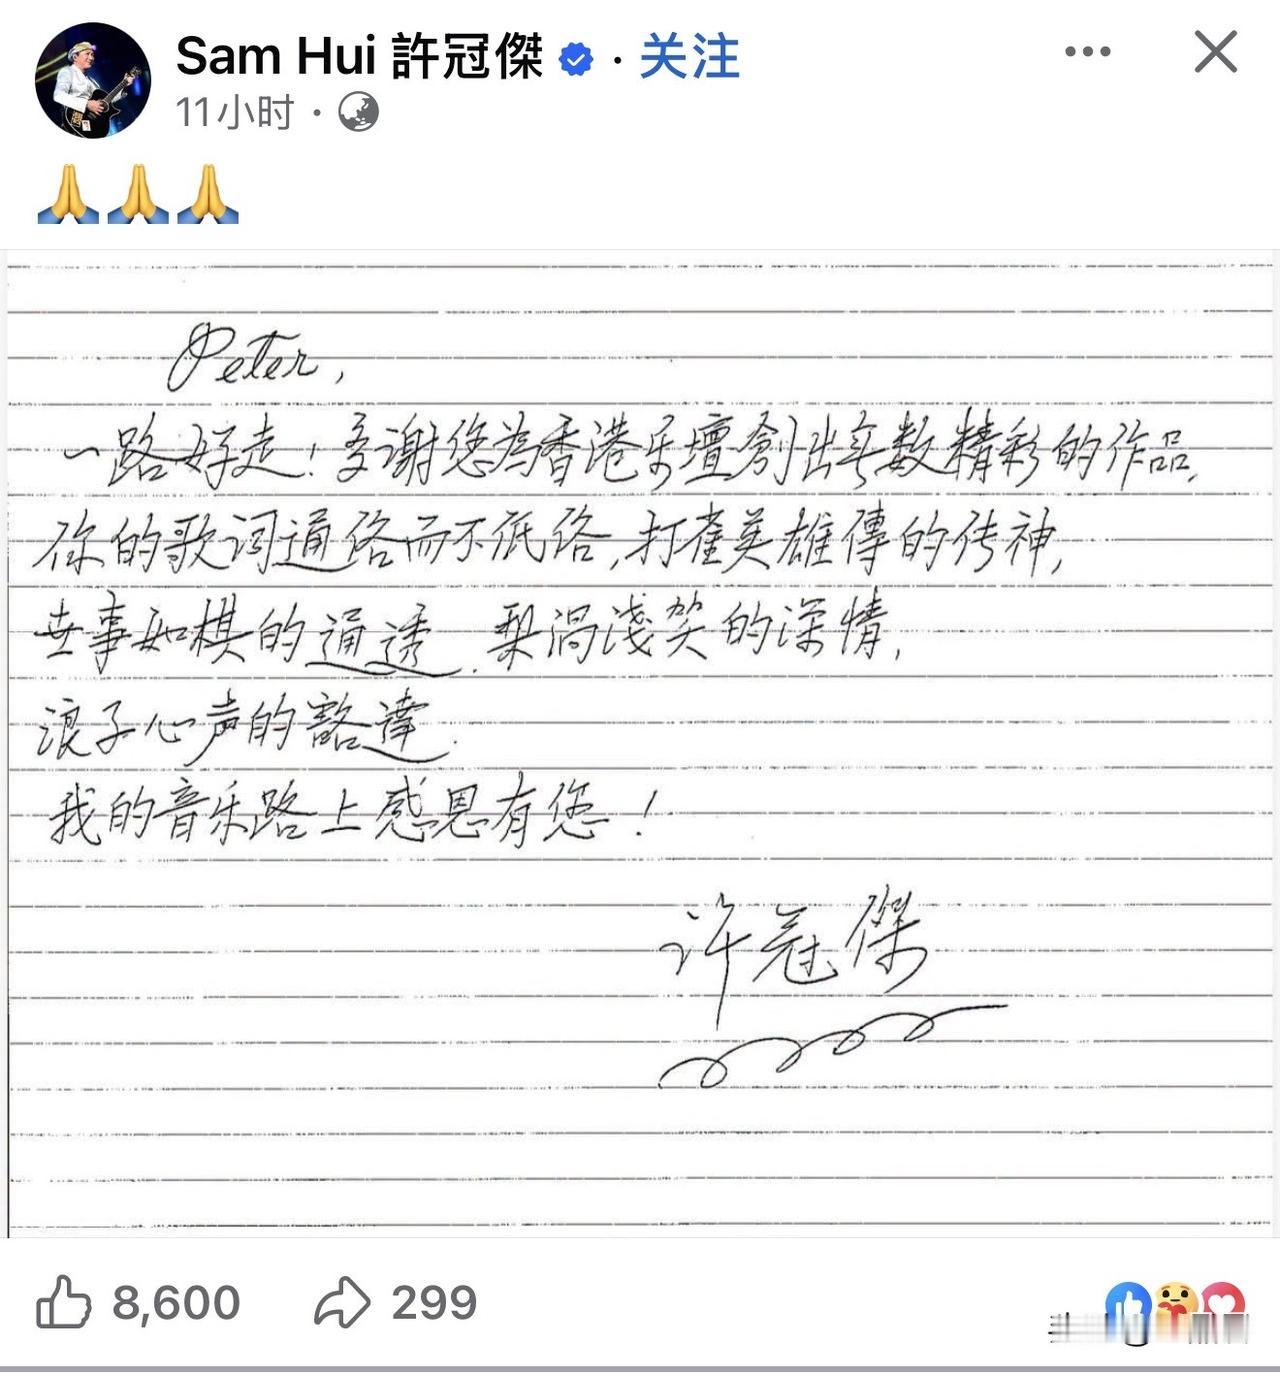 Sam Hui 許冠傑 · 关注
11小时 ·
Peter,
一路好走！多謝您為香港乐壇創出无数精彩的作品,
你的歌词通俗而不低俗,打雀英雄傳的传神,
世事如棋的通透.梨涡淺笑的深情,
浪子心声的豁達.
我的音乐路上感恩有您！
许冠傑
8,600 299